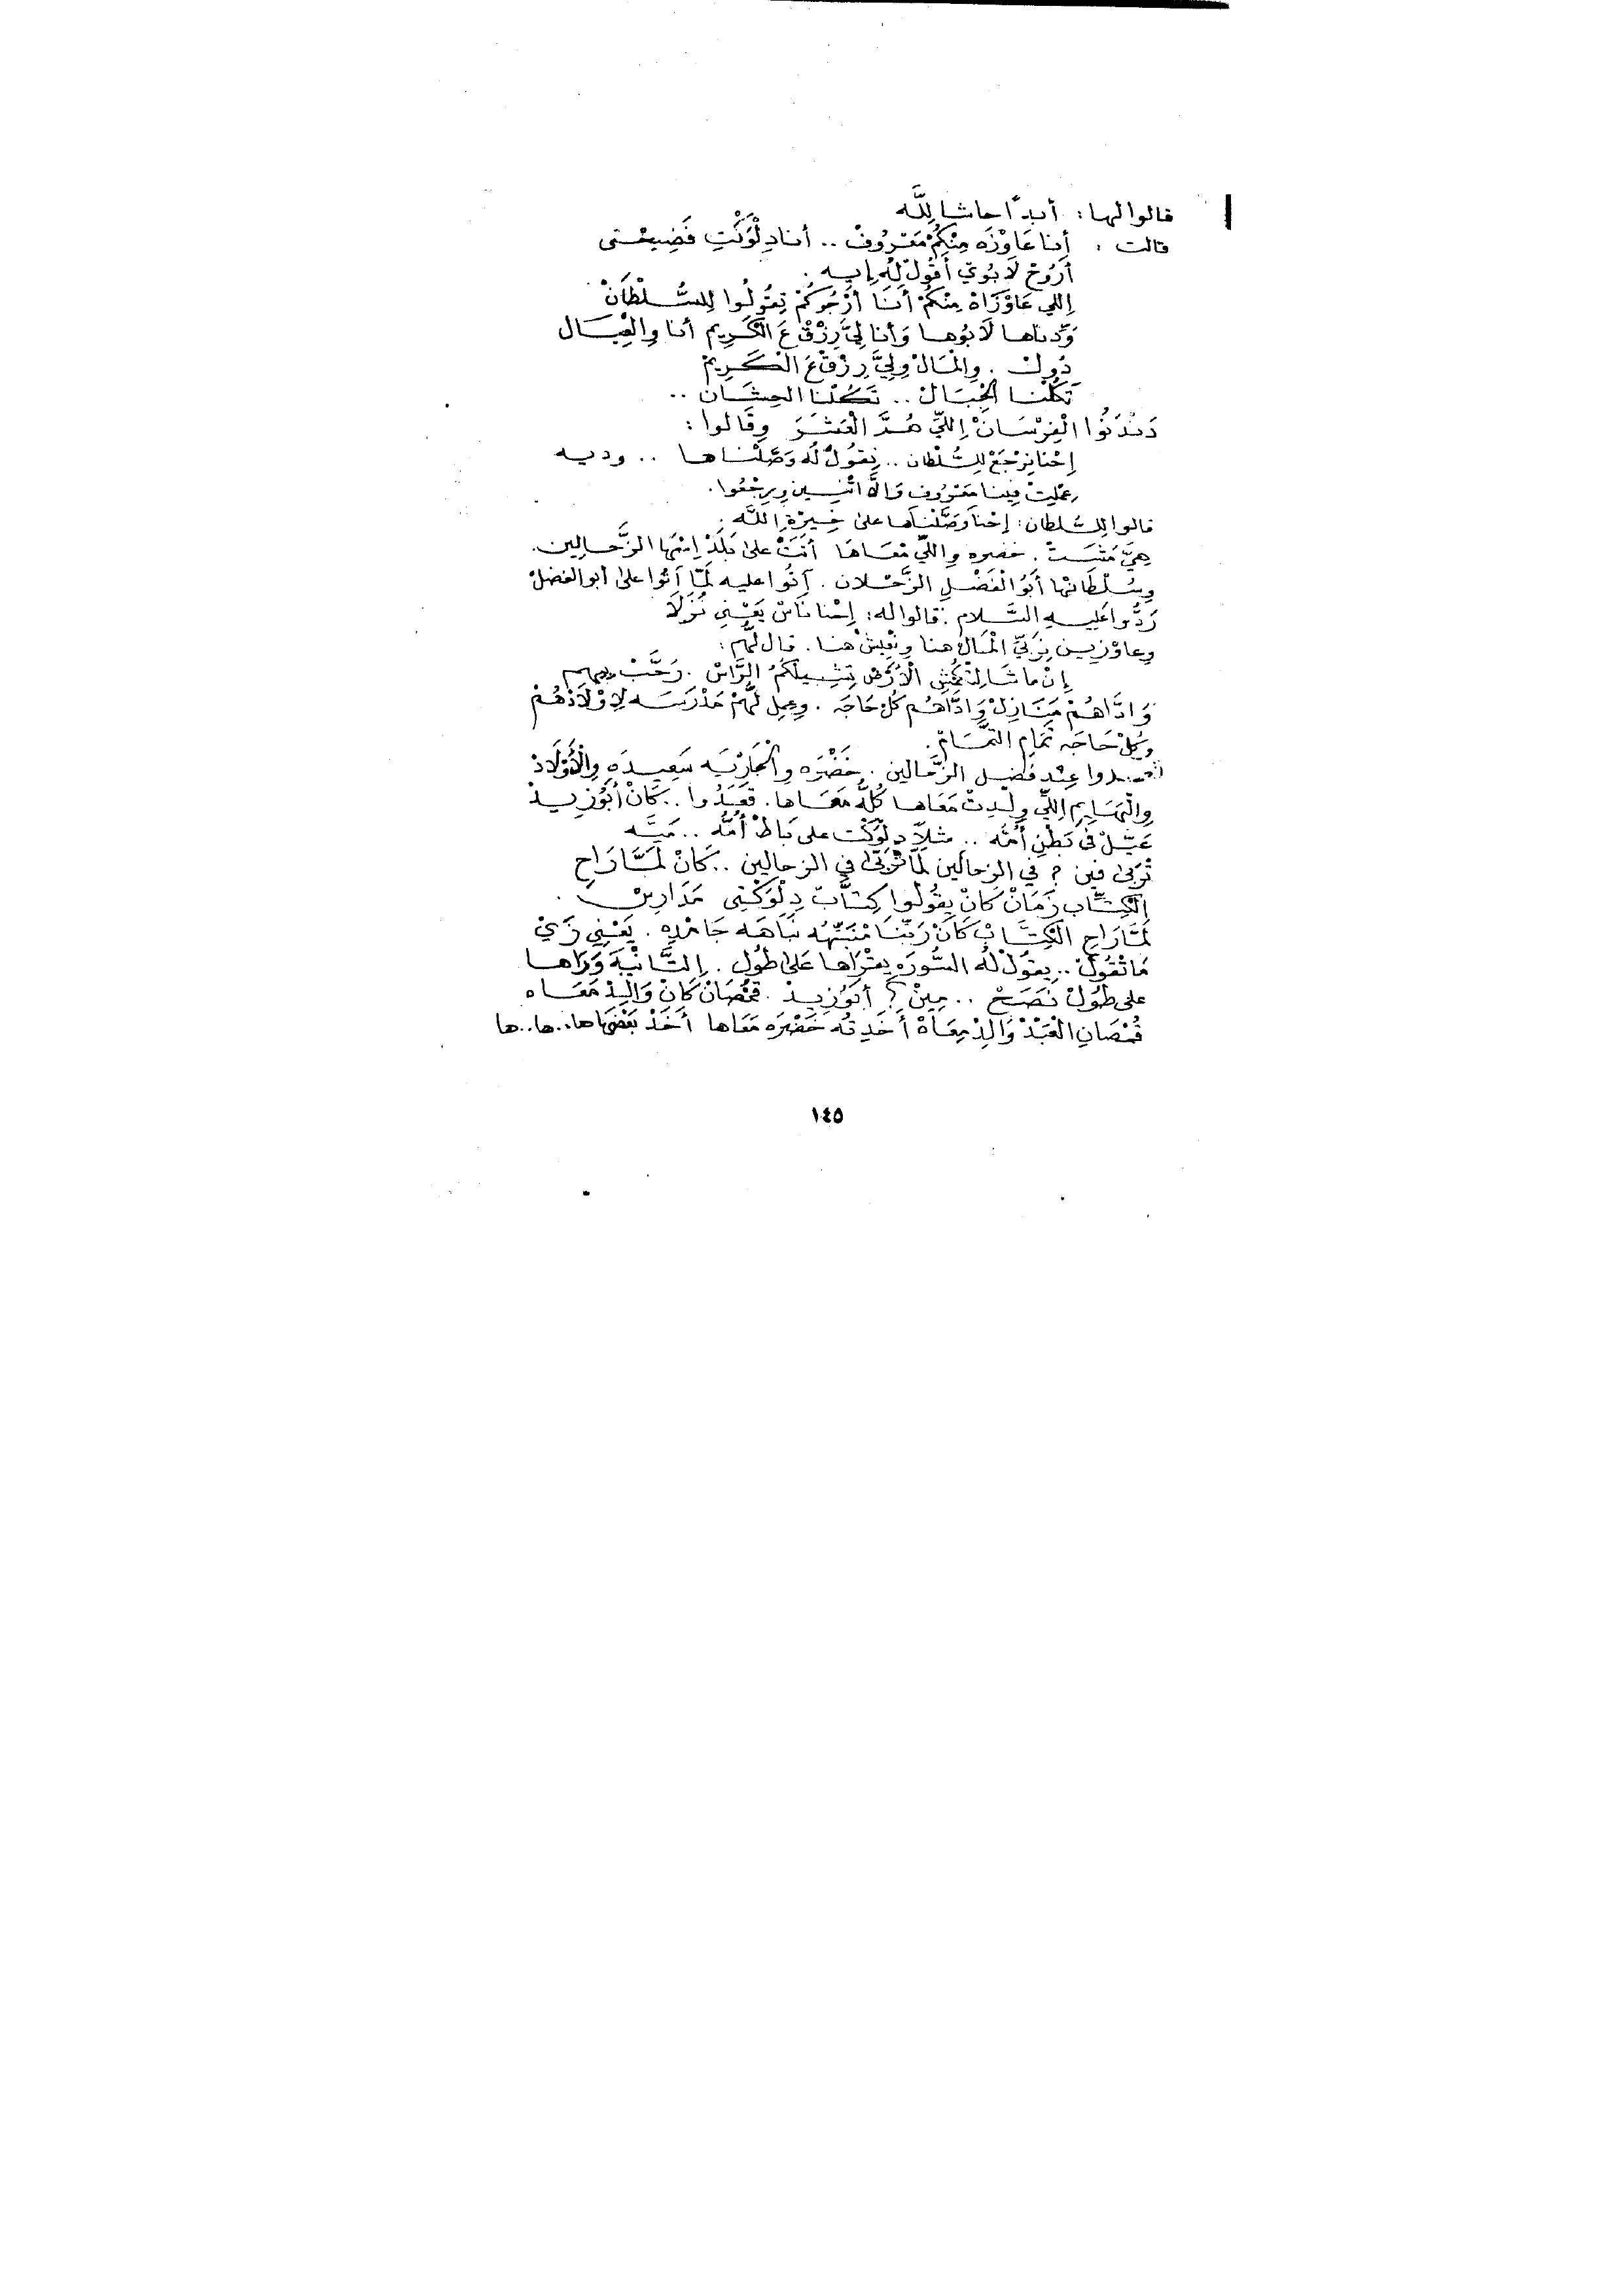 قالوا لها: أبداً حاشا لِلَّه
قالت: أَنا عَاوْزَه مِنْكُمْ مَعْرُوفْ .. أنا دِلْوَكْتِ فَضِيحْتى
أَرُوحْ لَابُويَ أَقُولْ لُه إِيه .
اِللي عَاوْزَاهْ مِنْكُمْ أَنَا أَرْجُوكُمْ تِقُولُوا لِلسُّلْطَانْ
وَدِّناها لَابُوها وَأنا لِيَّ رِزْقْ عَ الْكَرِيم أنا وِالْعِيَال
دُولْ . وِالْمَالْ وِلِيَّ رِزْقْ عَ الْكَرِيمْ
تَكُلْنا الْجِبَالْ .. تَكُلْنا الحِيشَان ..
دَنْدَنُوا الْفِرْسَانْ اِللِّي هُمَّ الْعَشَرَ وِقَالوا :
إِحْنا نِرْجَعْ لِلسُّلْطان .. نِقُولْ لُه وَصَّلْناها .. وديه
عِمْلِتْ فِينا مَعْرُوف وَالَّا اتْنِسين وِيِرْجْعُوا.
قالوا لِلسُّلطان: إِحْنا وَصَّلْنَاها على خِيرَةِ اللَّه .
هِيَّ مَشَتْ . خضره وِاللِّي مَعَاهَا أَتَتْ على بَلَدْ اِسْمَها الزَّحالين.
وِسُلْطَانْها أَبُو الْفَضْلِ الزَّحْلان . أَتُوا عليه لَمَّا أَتُوا على أبو الفضلْ
رَدُّوا عَلِيهِ السَّلام . قالوا له : إِحْنا نَاسْ يَعْنِي نُزَلَا
وِعاوْزِين نِرَبِّي الْمَالْ هنا وِنْعِيشْ هنا . قال لُهُمْ :
إِنْ ما شَالِتْكُمْشِ الْأَرْضْ تِشِيلْكُمُ الرَّاسْ . رَحَّبْ بيهم
وَادَّاهُمْ مَنَازِلْ وَادَّاهُم كُلْ حَاجَه . وِعِمِل لُهُمْ مَدْرَسَه لِاوْلَادْهُمْ
وِكُلْ حَاجَه تَمَامِ التَّمَامْ.
قعدوا عِنْدِ فَضل الزَّحَالين . خَضْرَه وِالْجَارْيَه سَعِيدَه وِالْأَوْلَادْ
وِالْبَهَايِمِ اِللِّي وِلْدِتْ مَعَاها كُلُّه مَعَاها . قَعَدُوا .. كَانْ أَبُو زِيدْ
عَيِّلْ فى بَطْنِ أُمُّه .. مثلاً دِلْوَكْت على بَاطْ أُمُّه .. مَيَّه
تْرَبَّى فين ؟ في الزحالين لَمَّا تْرَبَّى في الزحالين .. كَانْ لَمَّا رَاحِ
الْكِتَّابِ زَمَانْ كَانْ يِقُولُوا كِتَّابْ دِلْوَكْتِى مَدَارِسْ .
لَمَّا رَاحِ الْكِتَّابْ كَانْ رَبِّنَا مْنَبِّهُه نَبَاهَه جَامْده . يَعْنِي زَيْ
مَا تْقُولْ .. يِقُولْ لُه السُّورَه يِقْرَاها عَلى طُولِ . اِلتَّانْيَةَ وَرَاها
على طُولْ نَصَحْ .. مِينْ ؟ أَبُو زِيدْ . قُمْصَانْ كَانْ وَالِدْ مَعَاه
قُمْصَانِ الْعَبْدْ وَالِدْ مِعَاهْ أَخَدِتُه خَضْرَه مَعَاها أَخَدْ بَعْضَهاها..ها..ها
١٤٥